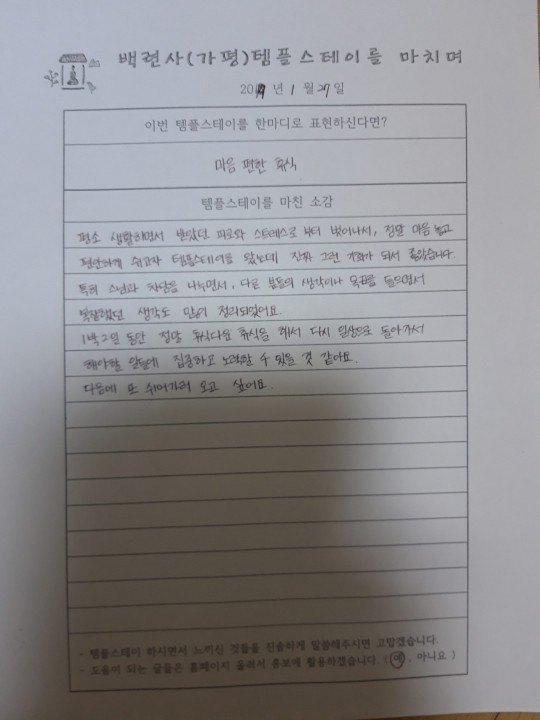 백련사(가평)템플스테이를 마치며
2019년 1월 27일
이번 템플스테이를 한마디로 표현하신다면?
마음 편한 휴식
템플스테이를 마친 소감
평소 생활하면서 받았던 피로와 스트레스로 부터 벗어나서, 정말 마음 놓고
편안하게 쉬고자 템플스테이를 왔는데 진짜 그런 기회가 되서 좋았습니다.
특히 스님과 차담을 나누면서, 다른 분들의 생각이나 목표를 들으면서
복잡했던 생각도 많이 정리되었어요.
1박2일 동안 정말 휴식다운 휴식을 해서 다시 일상으로 돌아가서
해야할 일들에 집중하고 노력할 수 있을 것 같아요.
다음에 또 쉬어가러 오고 싶어요.
- 템플스테이 하시면서 느끼신 것들을 진솔하게 말씀해주시면 고맙겠습니다.
- 도움이 되는 글들은 홈페이지 올려서 홍보에 활용하겠습니다. ( 예 , 아니요 )